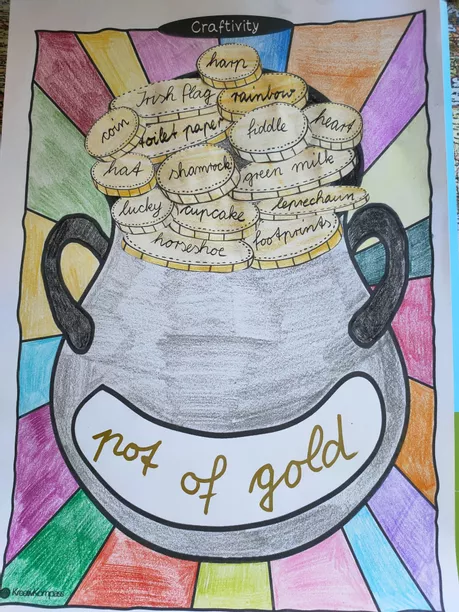 Craftivity
harp
Irish flag
rainbow
coin
toilet paper
fiddle
heart
hat
shamrock
green milk
lucky
cupcake
leprechaun
horseshoe
footprints
pot of gold
KreativKompass